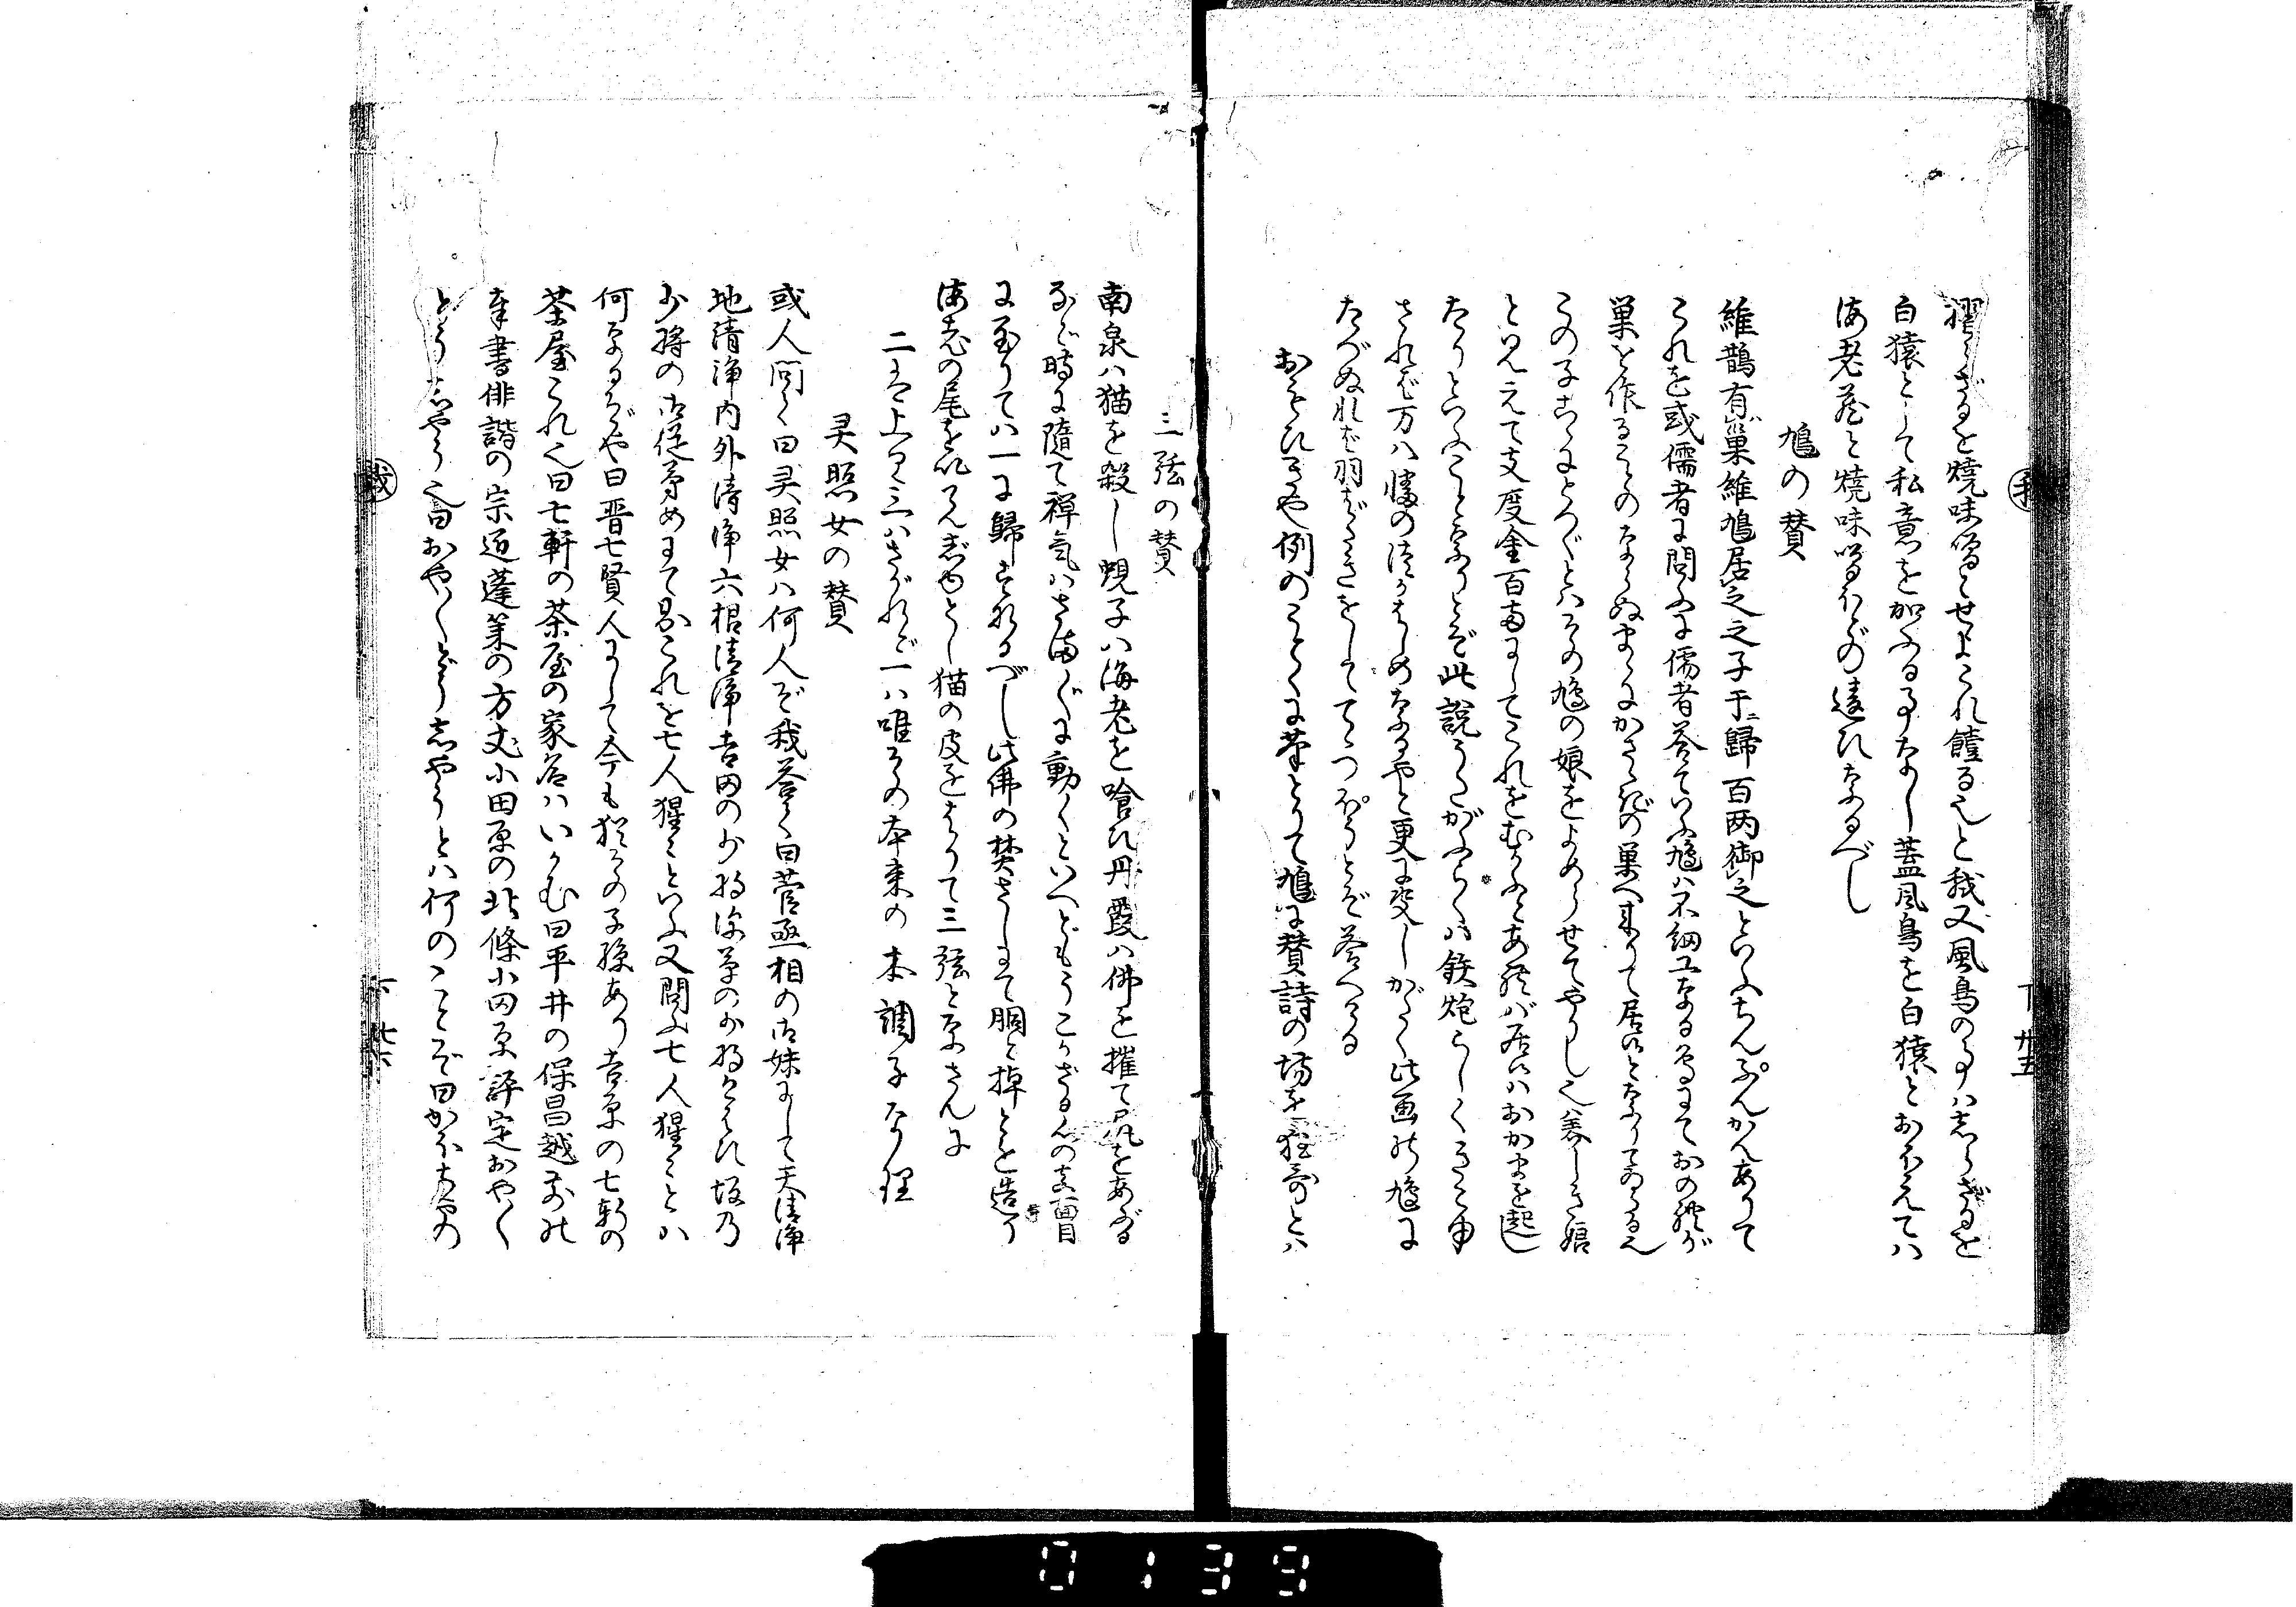 擢らざるを焼味噌とせよこれ饐る也と我又風鳥の事ハしらざるを
白猿として私意を加ふる事なし蓋風鳥を白猿とおぼえてハ
海老蔵と焼味噌ほどの違ひなるべし
鳩の賛
維鵲有巣維鳩居之之子于歸百両御之といふちんぷんかんありて
これを或儒者に問ふに儒者答ていふ鳩ハ不細工なる鳥にておのれが
巣を作ることのならぬまゝにかさゝぎの巣へ来りて居候となりてゐる也
この子こゝにとつぐとハその鳩の娘をよめらせてやりし也美しき娘
と見えて支度金百両にしてこれをむかふとあれバ居候ハおかまを起し
たりといふことなりとぞ此説うたがふらくハ鉄炮らしくきこ申
されど万八幡の使はしめなるや更に変しがたく此画の鳩に
たづぬれど羽ばたきをしててつぽうとぞ答へける
おもひきや例のことくに筆とりて鳩に賛詩の坊を狂哥とハ
三弦の賛
南泉ハ猫を殺し蜆子ハ海老を喰ひ丹霞ハ佛を摧て尻をあぶる
なと時に隨て禅気ハさま〴〵に動くといへどもうこかざる所の真面目
に至りてハ一に歸すなるべし此佛の焚さしにて胴と棹とを造り
海老の尾を以てんじゆとし猫の皮をはりて三弦となさんに
二上り三ハさがれど一ハ唯その本来の本調子なり
灵照女の賛
或人問て曰灵照女ハ何人ぞ我答て曰菅亟相の御妹にして天清浄
地清浄内外清浄六根清浄吉田の少将深草の少将けはひ坂乃
少将の御従弟めにて則これを七人猩々といふ又問ふ七人猩々とハ
何なるぞや曰晋七賢人にして今も猶その子孫あり吉原の七軒の
茶屋これ也曰七軒の茶屋の家名ハいかむ曰平井の保昌越前の
奉書俳諧の宗迊蓬莱の方丈小田原の北條小田原評定おやく
どうしやう也曰おやくどうしやうとハ何のことぞ曰かほちやの
下 廿五
下 廿六
0139